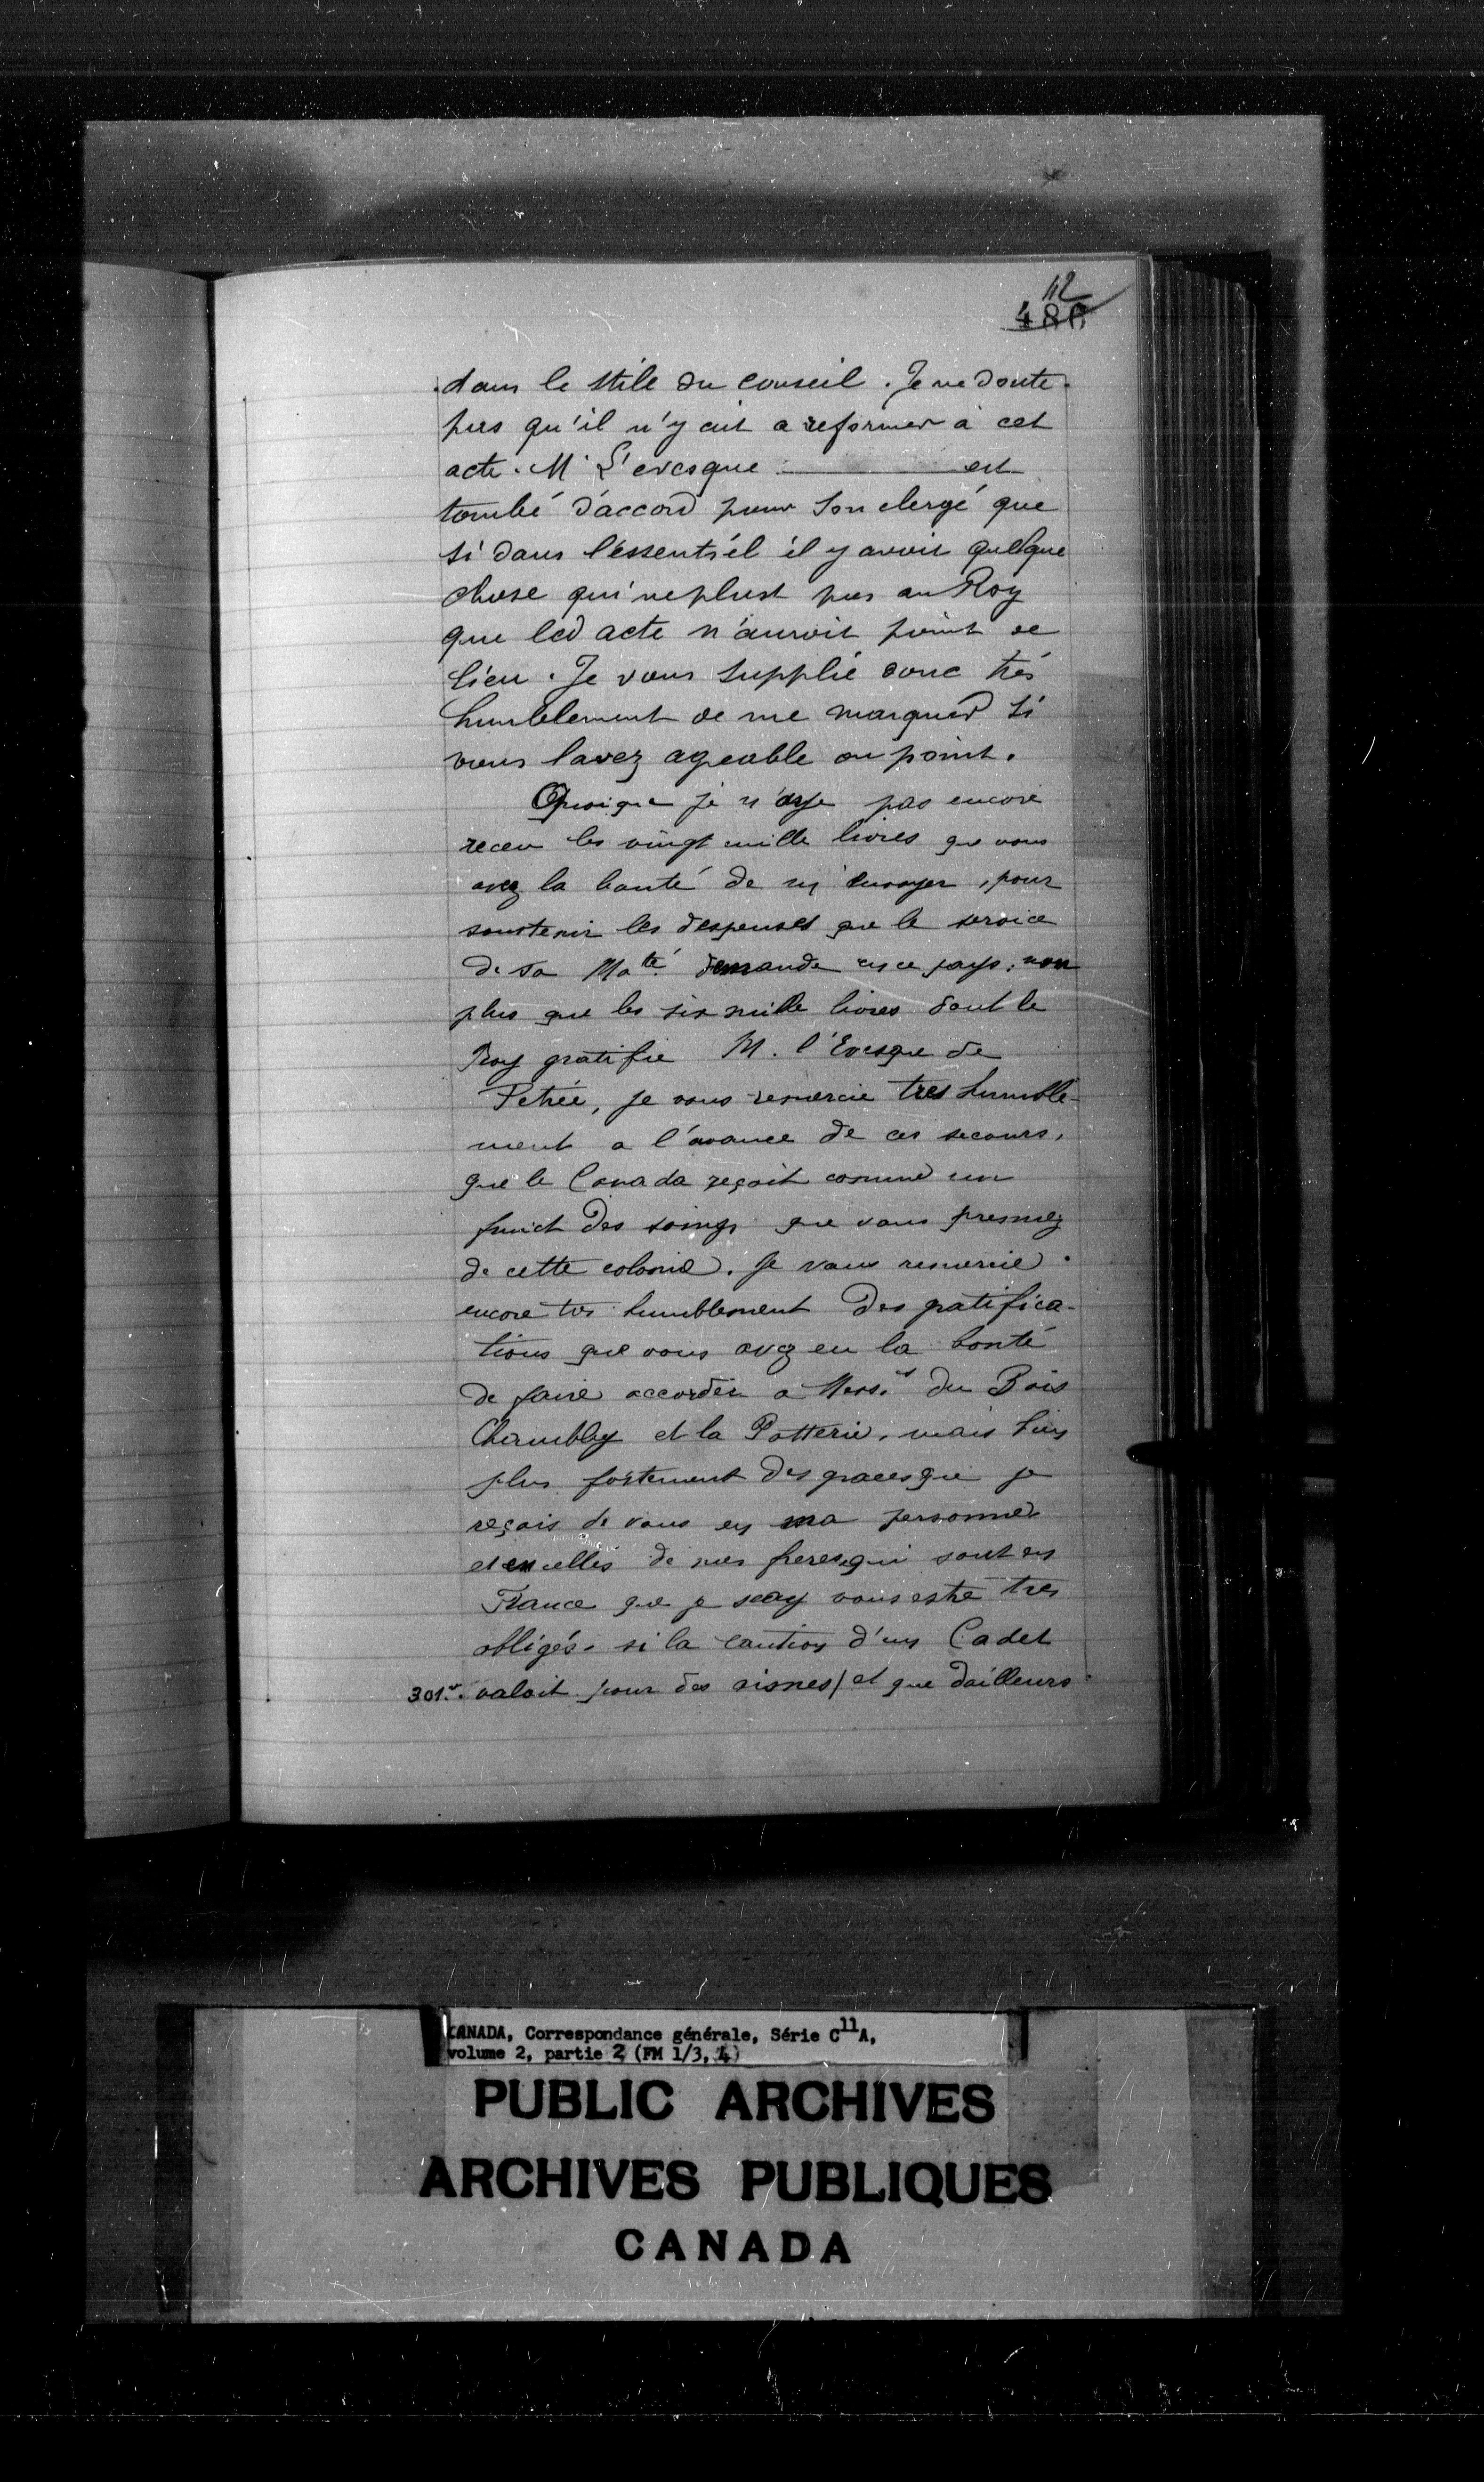 112
480
dans le stile du conseil. Je ne doute
pas qu'il n'y ait a reformer à cet
acte. M. L'evesque est
tombé d'accord pour son clergé que
si dans l'essentiel il y avoit quelque
chose qui ne plust pas au Roy
que led acte n'auroit point de
lieu. Je vous supplie donc très
humblement de me marquer si
vous lavez agreable ou point.
Quoique je n'aye pas encore
receu les vingt mille livres que vous
avez la bonté de m'envoyer, pour
soustenir les despenses que le service
de sa Maté demande en ce pays, non
plus que les six mille livres dont le
Roy gratifie M. l'Evesque de
Petrée, je vous remercie tres humble-
ment a l'avance de ces secours,
que le Canada reçoit comme un
fruict des soings que vous prennez
de cette colonie. Je vous remercie
encore tres humblement des gratifica-
tions que vous avez eu la bonté
de faire accorder a Messrs du Bois
Chambly et la Potterie, mais bien
plus fortement des graces que je
reçois de vous en ma personne
et en celles de mes freres qui sont en
France que je scay vous estre tres
obligés. si la caution d'un Cadet
301.v. valoit pour des aisnes/ et que dailleurs
CANADA, Correspondance générale, Série C11A,
volume 2, partie 2 (FM 1/3, 4)
PUBLIC ARCHIVES
ARCHIVES PUBLIQUES
CANADA